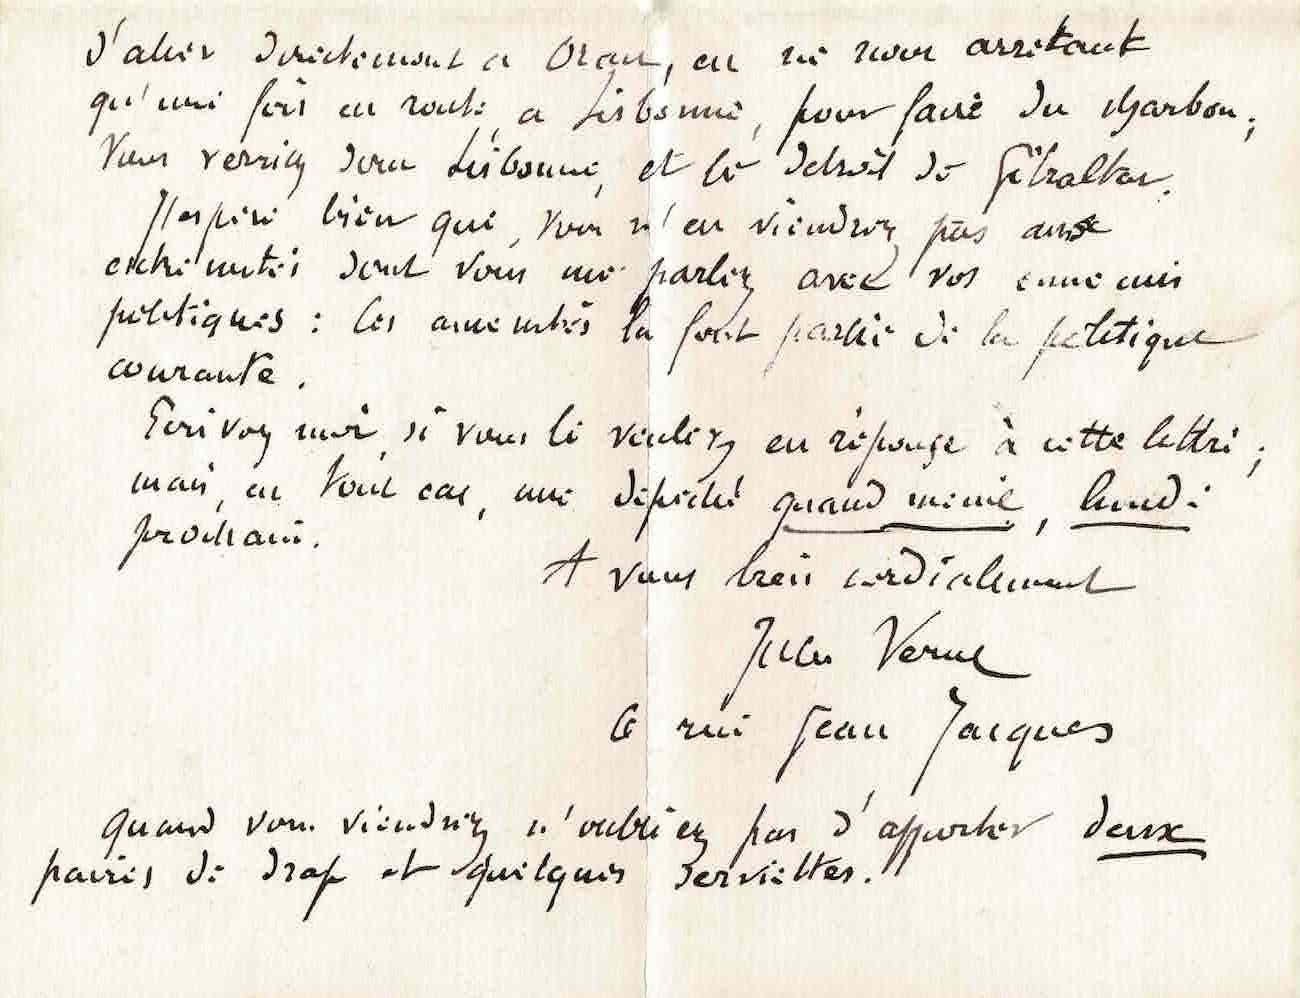 d'aller directement à Oran, en ne nous arrêtant
qu'une fois en route, à Lisbonne, pour faire du charbon;
Vous verriez donc Lisbonne, et le détroit de Gibraltar.
J'espère bien que, vous n'en viendrez pas aux
extrémités dont vous me parlez avec vos ennemis
politiques: les aménités là font partie de la politique
courante.
Ecrivez moi, si vous le voulez, en réponse à cette lettre;
mais, en tout cas, une dépêche quand même, lundi
prochain.
A vous bien cordialement
Jules Verne
6 rue Jean Jacques
Quand vous viendrez, n'oubliez pas d'apporter deux
paires de drap et quelques serviettes.